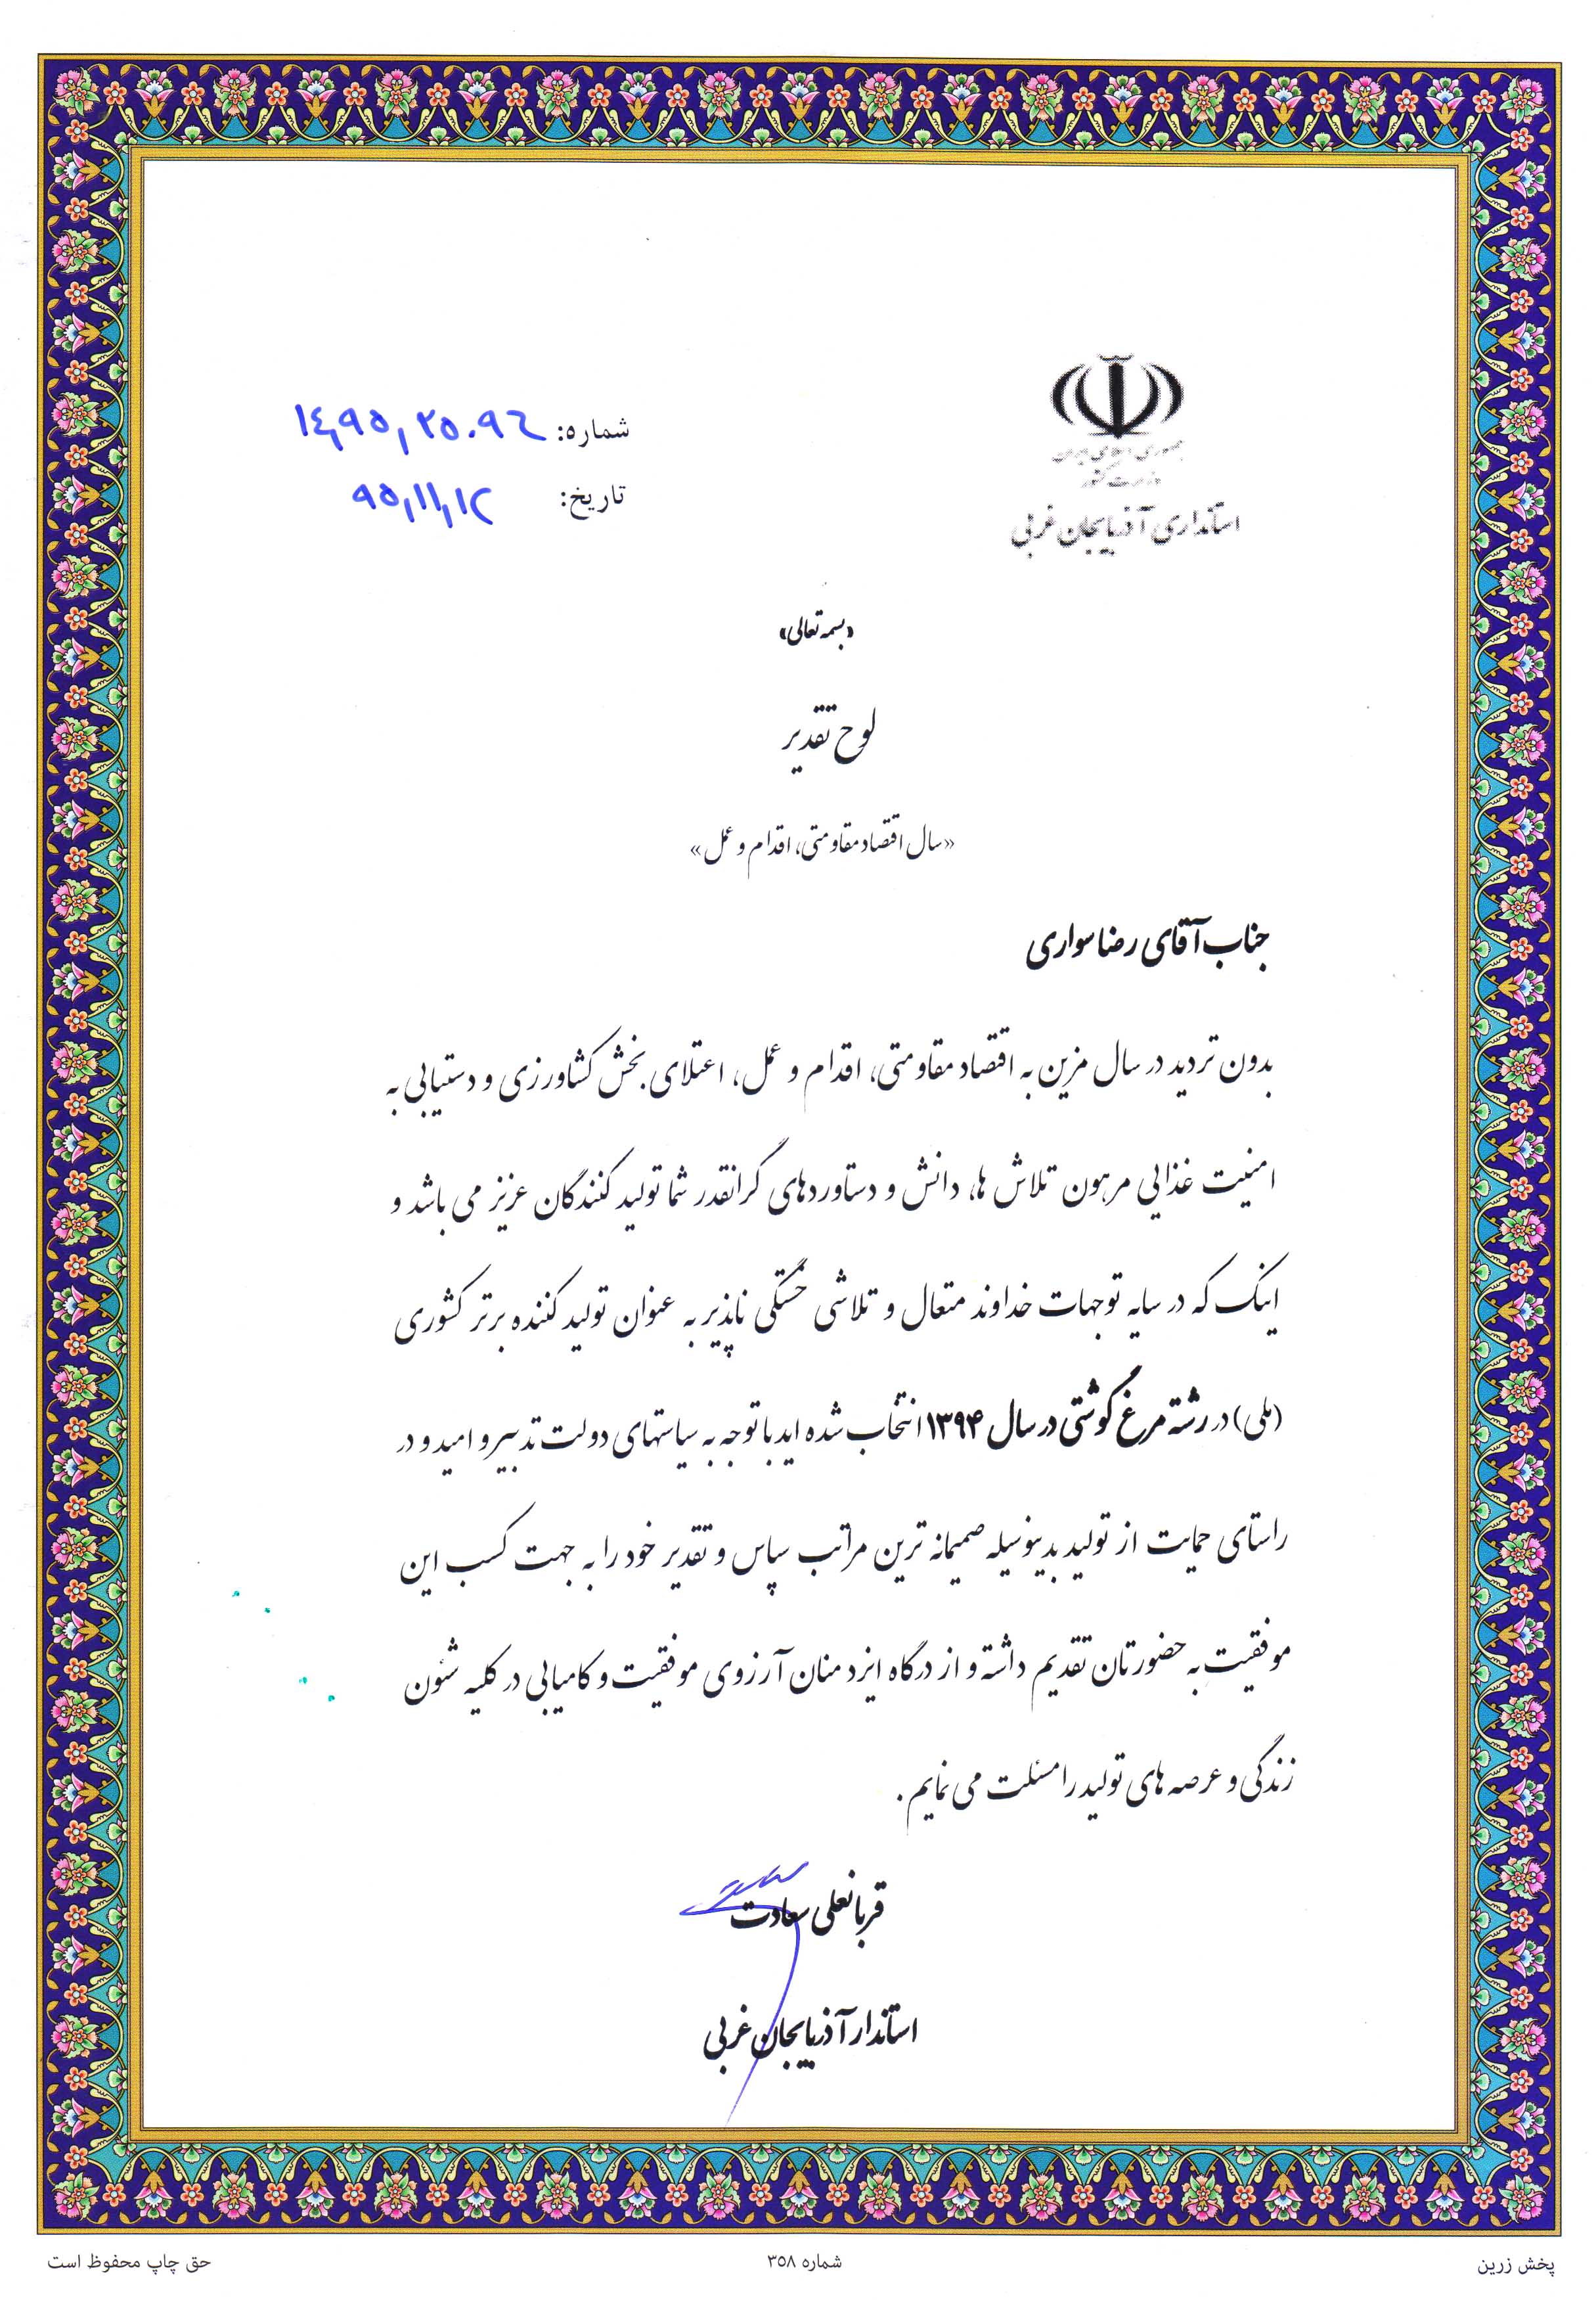 جمهوری اسلامی ایران
وزارت کشور
استانداری آذربایجان غربی
شماره: ۱٤٫۹۵٫۲۵۰۹٦
تاریخ: ۹۵٫۱۱٫۱۲
«بسمه تعالی»
لوح تقدیر
«سال اقتصاد مقاومتی، اقدام و عمل»
جناب آقای رضا سواری
بدون تردید در سال مزین به اقتصاد مقاومتی، اقدام و عمل، اعتلای بخش کشاورزی و دستیابی به
امنیت غذایی مرهون تلاش ها، دانش و دستاوردهای گرانقدر شما تولید کنندگان عزیز می باشد و
اینک که در سایه توجهات خداوند متعال و تلاشی خستگی ناپذیر به عنوان تولید کننده برتر کشوری
(ملی) در رشته مرغ گوشتی در سال ۱۳۹۴ انتخاب شده اید با توجه به سیاستهای دولت تدبیر و امید و در
راستای حمایت از تولید بدینوسیله صمیمانه ترین مراتب سپاس و تقدیر خود را به جهت کسب این
موفقیت به حضورتان تقدیم داشته و از درگاه ایزد منان آرزوی موفقیت و کامیابی در کلیه شئون
زندگی و عرصه های تولید را مسئلت می نمایم.
قربانعلی سعادت
استاندار آذربایجان غربی
پخش زرین
شماره ۳۵۸
حق چاپ محفوظ است